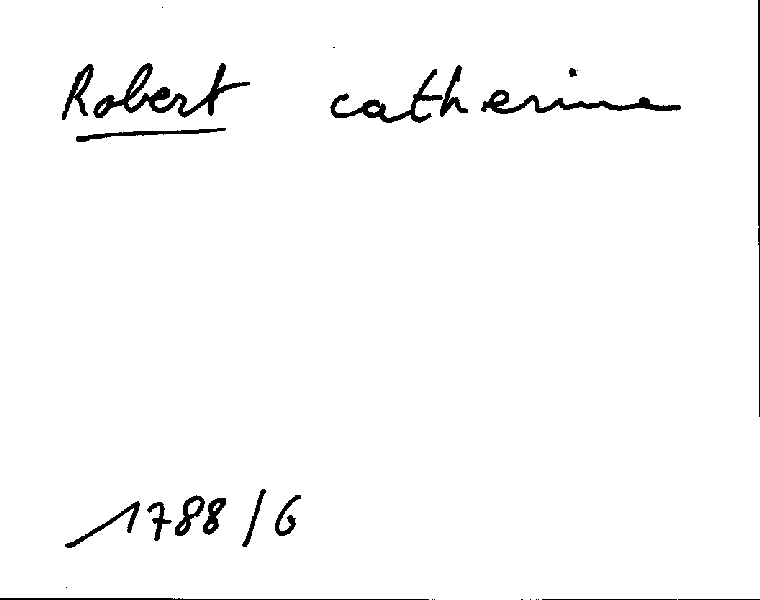 Robert catherine
1788/6